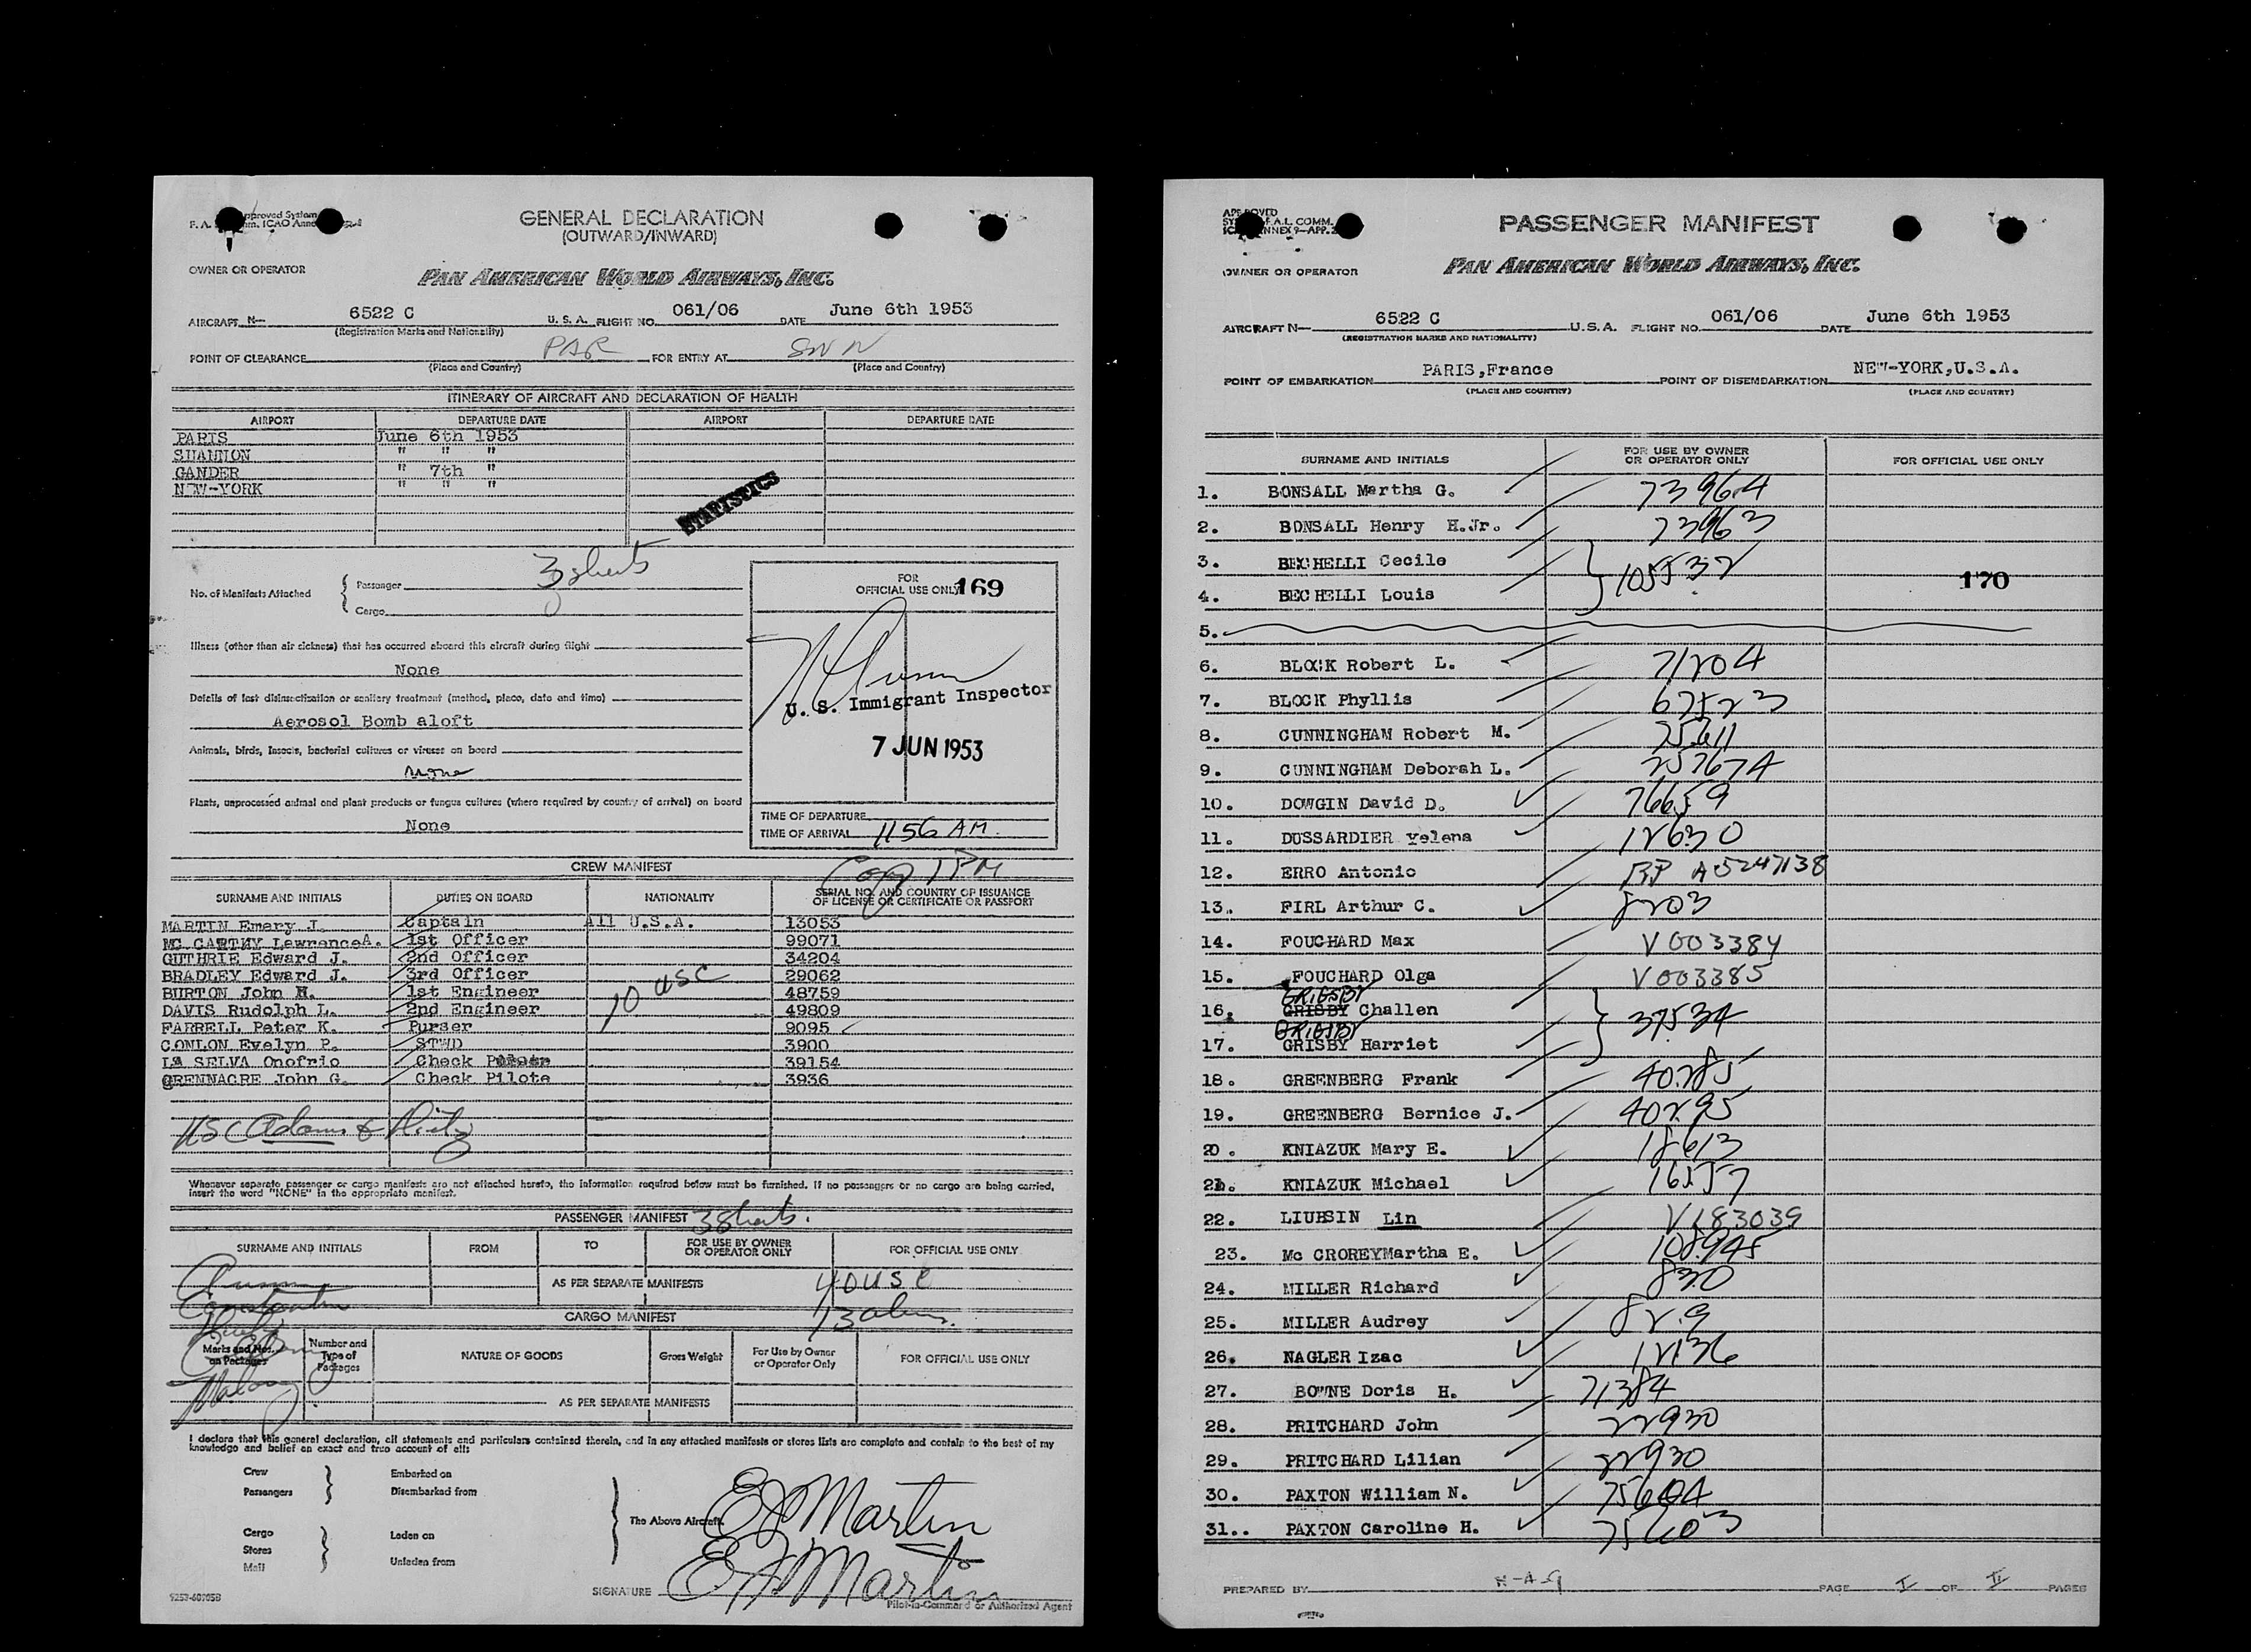 GENERAL DECLARATION
(OUTWARD/INWARD)
OWNER OR OPERATOR
PAN AMERICAN WORLD AIRWAYS, INC.
AIRCRAFT N— 6522 C U. S. A. FLIGHT NO. 061/06 DATE June 6th 1953
(Registration Marks and Nationality)
POINT OF CLEARANCE PAR FOR ENTRY AT SNN
(Place and Country) (Place and Country)
ITINERARY OF AIRCRAFT AND DECLARATION OF HEALTH
AIRPORT DEPARTURE DATE AIRPORT DEPARTURE DATE
PARIS June 6th 1953
SHANNON " " "
GANDER " 7th "
NEW-YORK " " "
STATISTICS
No. of Manifests Attached { Passenger 3 sheets
Cargo
FOR
OFFICIAL USE ONLY 169
Illness (other than air sickness) that has occurred aboard this aircraft during flight
None
Details of last disinsectization or sanitary treatment (method, place, date and time)
Aerosol Bomb aloft
Animals, birds, insects, bacterial cultures or viruses on board
None
Plants, unprocessed animal and plant products or fungus cultures (where required by country of arrival) on board
None
U. S. Immigrant Inspector
7 JUN 1953
TIME OF DEPARTURE
TIME OF ARRIVAL 1156 AM.
CREW MANIFEST
SURNAME AND INITIALS DUTIES ON BOARD NATIONALITY SERIAL NO. AND COUNTRY OF ISSUANCE
OF LICENSE OR CERTIFICATE OR PASSPORT
MARTIN Emery J. Captain All U.S.A. 13053
MC CARTHY Lawrence A. 1st Officer 99071
GUTHRIE Edward J. 2nd Officer 34204
BRADLEY Edward J. 3rd Officer 29062
BURTON John H. 1st Engineer 48759
DAVIS Rudolph L. 2nd Engineer 49809
FARRELL Peter K. Purser 9095
CONLON Evelyn P. STWD 3900
LA SELVA Onofrio Check 39154
GRENNACRE John G. Check Pilote 3936
10 USC
Whenever separate passenger or cargo manifests are not attached hereto, the information required below must be furnished. If no passengers or no cargo are being carried,
insert the word "NONE" in the appropriate manifest.
PASSENGER MANIFEST 3 Sheets.
SURNAME AND INITIALS FROM TO FOR USE BY OWNER
OR OPERATOR ONLY FOR OFFICIAL USE ONLY
AS PER SEPARATE MANIFESTS 4 0 USC
CARGO MANIFEST
Marks and Nos.
on Packages Number and
Type of
Packages NATURE OF GOODS Gross Weight For Use by Owner
or Operator Only FOR OFFICIAL USE ONLY
AS PER SEPARATE MANIFESTS
I declare that this general declaration, all statements and particulars contained therein, and in any attached manifests or stores lists are complete and contain to the best of my
knowledge and belief an exact and true account of all:
Crew Embarked on
Passengers Disembarked from
The Above Aircraft.
Cargo Laden on
Stores
Mail Unladen from
E J Martin
SIGNATURE E J Martin
Pilot-in-Command or Authorized Agent
PASSENGER MANIFEST
OWNER OR OPERATOR
PAN AMERICAN WORLD AIRWAYS, INC.
AIRCRAFT N— 6522 C U.S.A. FLIGHT NO. 061/06 DATE June 6th 1953
(REGISTRATION MARKS AND NATIONALITY)
POINT OF EMBARKATION PARIS,France POINT OF DISEMBARKATION NEW-YORK,U.S.A.
(PLACE AND COUNTRY) (PLACE AND COUNTRY)
SURNAME AND INITIALS FOR USE BY OWNER
OR OPERATOR ONLY FOR OFFICIAL USE ONLY
1. BONSALL Martha G. 73964
2. BONSALL Henry H.Jr. 73963
3. BECHELLI Cecile 105532
170
4. BECHELLI Louis
5.
6. BLOCK Robert L. 71204
7. BLOCK Phyllis 67523
8. CUNNINGHAM Robert M. 25611
9. CUNNINGHAM Deborah L. 25767A
10. DOWGIN David D. 76659
11. DUSSARDIER Yelena 12630
12. ERRO Antonio A-5247138
13. FIRL Arthur C. 8203
14. FOUCHARD Max V 003384
15. FOUCHARD Olga V 003385
GRIGSBY
16. GRISBY Challen 37534
GRIGSBY
17. GRISBY Harriet
18. GREENBERG Frank 40285
19. GREENBERG Bernice J. 40295
20. KNIAZUK Mary E. 18613
21. KNIAZUK Michael 16557
22. LIUHSIN Lin V 183039
23. Mc CROREYMartha E. 108945
24. MILLER Richard 830
25. MILLER Audrey 829
26. NAGLER Izac 12136
27. BOWNE Doris H. 71384
28. PRITCHARD John 22930
29. PRITCHARD Lilian 22930
30. PAXTON William N. 75604
31.. PAXTON Caroline H. 75603
PREPARED BY PAGE I OF II PAGES